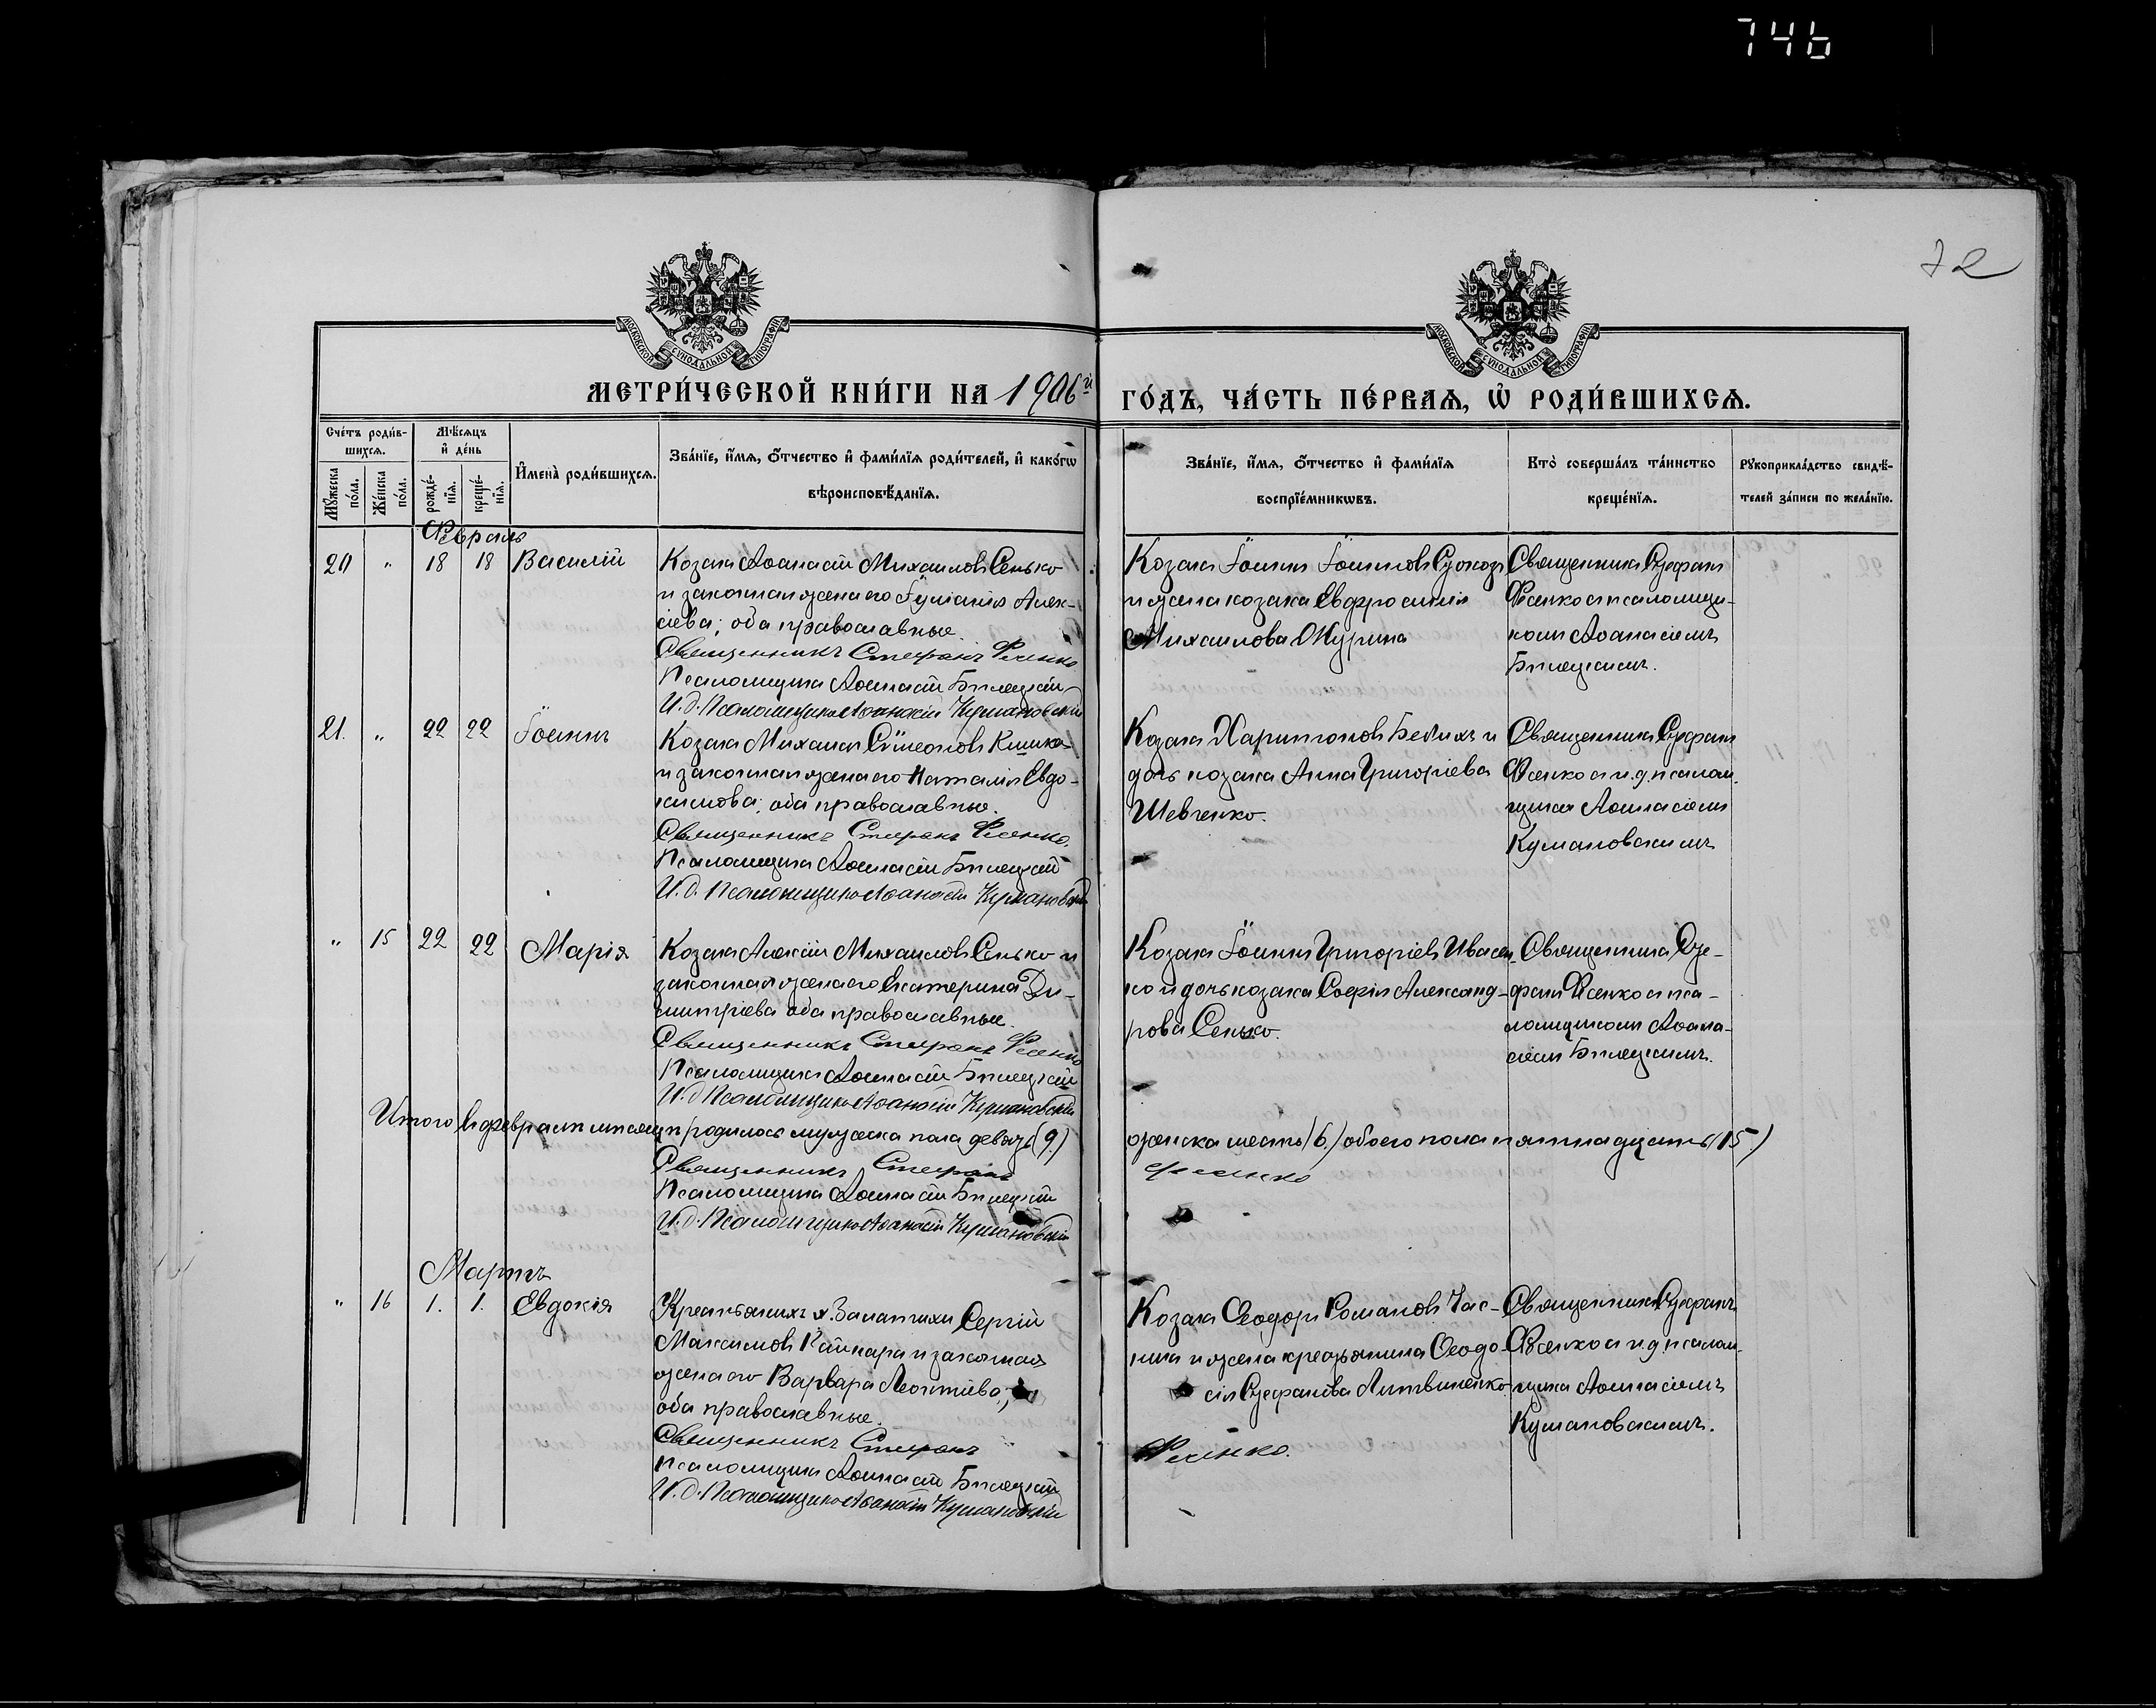 746
72
МОСКОВСКОЙ СѴНОДАЛЬНОЙ ТИПОГРАФІИ
МОСКОВСКОЙ СѴНОДАЛЬНОЙ ТИПОГРАФІИ
МЕТРИ́ЧЕСКОЙ КНИ́ГИ НА 1906й
ГО́ДЪ, ЧА́СТЬ ПЕ́РВАѦ, Ѡ҆ РОДИ́ВШИХСѦ.
Сче́тъ роди́в-
шихсѧ.
Мꙋ́жеска по́ла.
Же́нска по́ла.
Мѣ́сѧцъ
и҆ де́нь
рожде́-
нїѧ.
креще́-
нїѧ.
И҆мена̀ роди́вшихсѧ.
Зва́нїе, и҆́мѧ, ѻ҆́тчество и҆ фами́лїѧ роди́телей, и҆ како́гѡ
вѣроисповѣ́данїѧ.
Зва́нїе, и҆́мѧ, ѻ҆́тчество и҆ фами́лїѧ
воспрїе́мникѡвъ.
Кто̀ соверша́лъ та́инство
креще́нїѧ.
Рꙋкоприкла́дство свидѣ́-
телей за́писи по жела́нїю.
Февраль
20 " 18 18 Василій
Козакъ Аѳанасій Михаиловъ Сенько
и законная жена его Іуліанія Алек-
сіева; оба православные.
Священникъ Стефанъ Фесенко
Псаломщикъ Аѳанасій Билецкій
И. д. Псаломщика Аѳанасій Кумановскій
Козакъ Іоаннъ Іоанновъ
и жена козака Евфросинія
Михаилова Журина
Священникъ Стефанъ
Фесенко съ псаломщи-
комъ Аѳанасіемъ
Билецкимъ.
21. " 22 22 Іоаннъ
Козакъ Михаилъ Сѵмеоновъ
и законная жена его Наталія Евдо-
кимова; оба православные.
Священникъ Стефанъ Фесенко.
Псаломщикъ Аѳанасій Билецкій
И. д. Псаломщика Аѳанасій Кумановскій
Козакъ Харитоновъ и
дочь козака Анна Григоріева
Шевченко.
Священникъ Стефанъ
Фесенко съ и. д. псалом-
щика Аѳанасіемъ
Кумановскимъ
" 15 22 22 Марія
Козакъ Алексій Михаиловъ Сенько и
законная жена его Екатерина Ди-
митріева оба православные.
Священникъ Стефанъ Фесенко
Псаломщикъ Аѳанасій Билецкій
И. д. Псаломщика Аѳанасій Кумановскій
Козакъ Іоаннъ Григоріевъ Ивасен-
ко и дочь козака Софія Александ-
рова Сенько.
Священникъ Сте-
фанъ Фесенко съ пса-
ломщикомъ Аѳана-
сіемъ Билецкимъ.
Итого въ февралѣ мѣсяцѣ родилось мужеска пола девять (9.)
женска шесть (6.) обоего пола пятнадцать (15)
Священникъ Стефанъ
Фесенко
Псаломщикъ Аѳанасій Билецкій
И. д. Псаломщика Аѳанасій Кумановскій
Мартъ
" 16 1. 1. Евдокія
Крестьянинъ х. Сергій
Максимовъ и законная
жена его Варвара Леонтіева,
оба православные.
Священникъ Стефанъ
Фесенко.
Псаломщикъ Аѳанасій Билецкій
И. д. Псаломщика Аѳанасій Кумановскій
Козакъ Ѳеодоръ Романовъ Час-
никъ и жена крестьянина Ѳеодо-
сія Стефанова Литвиненко
Священникъ Стефанъ
Фесенко съ и. д. псалом-
щика Аѳанасіемъ
Кумановскимъ.